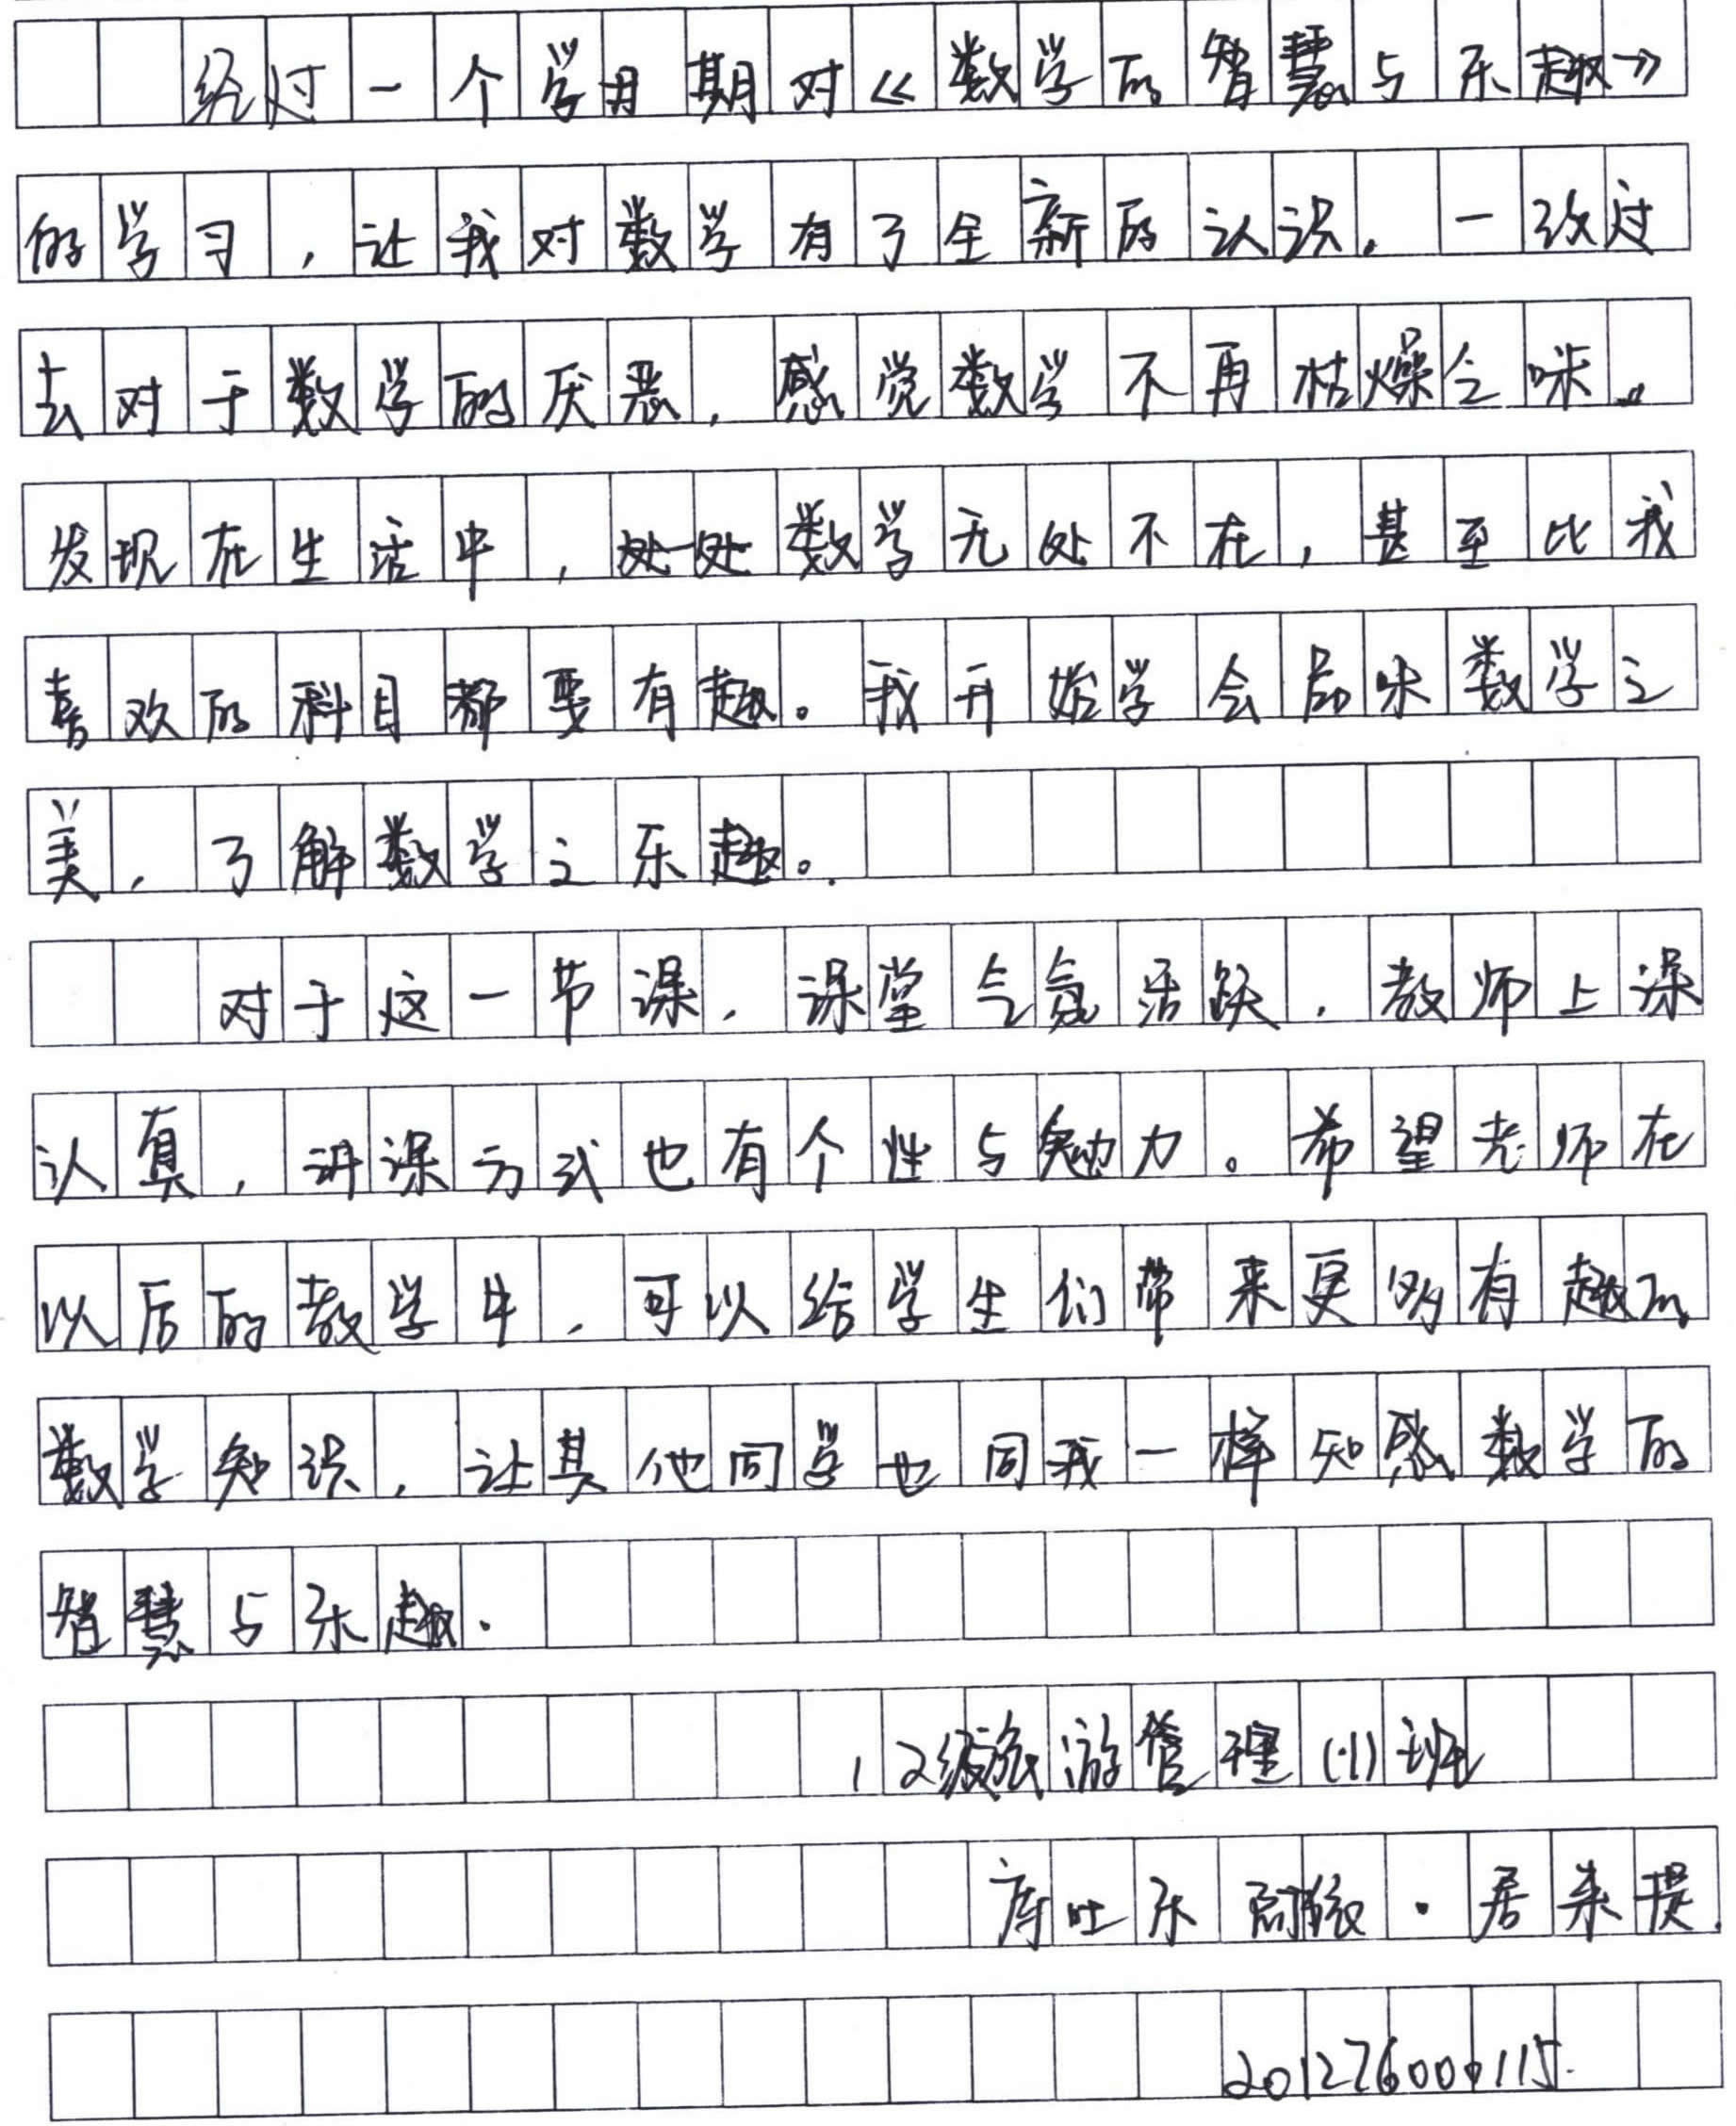 经过一个学月期对《数学的智慧与乐趣》
的学习，让我对数学有了全新的认识。一改过
去对于数学的厌恶，感觉数学不再枯燥乏味。
发现在生活中，处处数学无处不在，甚至比我
喜欢的科目都要有趣。我开始学会品味数学之
美，了解数学之乐趣。
对于这一节课，课堂气氛活跃，教师上课
认真，讲课方式也有个性与勉力。希望老师在
以后的教学中，可以给学生们带来更多有趣的
数学知识，让其他同学也同我一样知感数学的
智慧与乐趣.
12级旅游管理(1)班
库吐乐阿依·居来提.
201276000115.